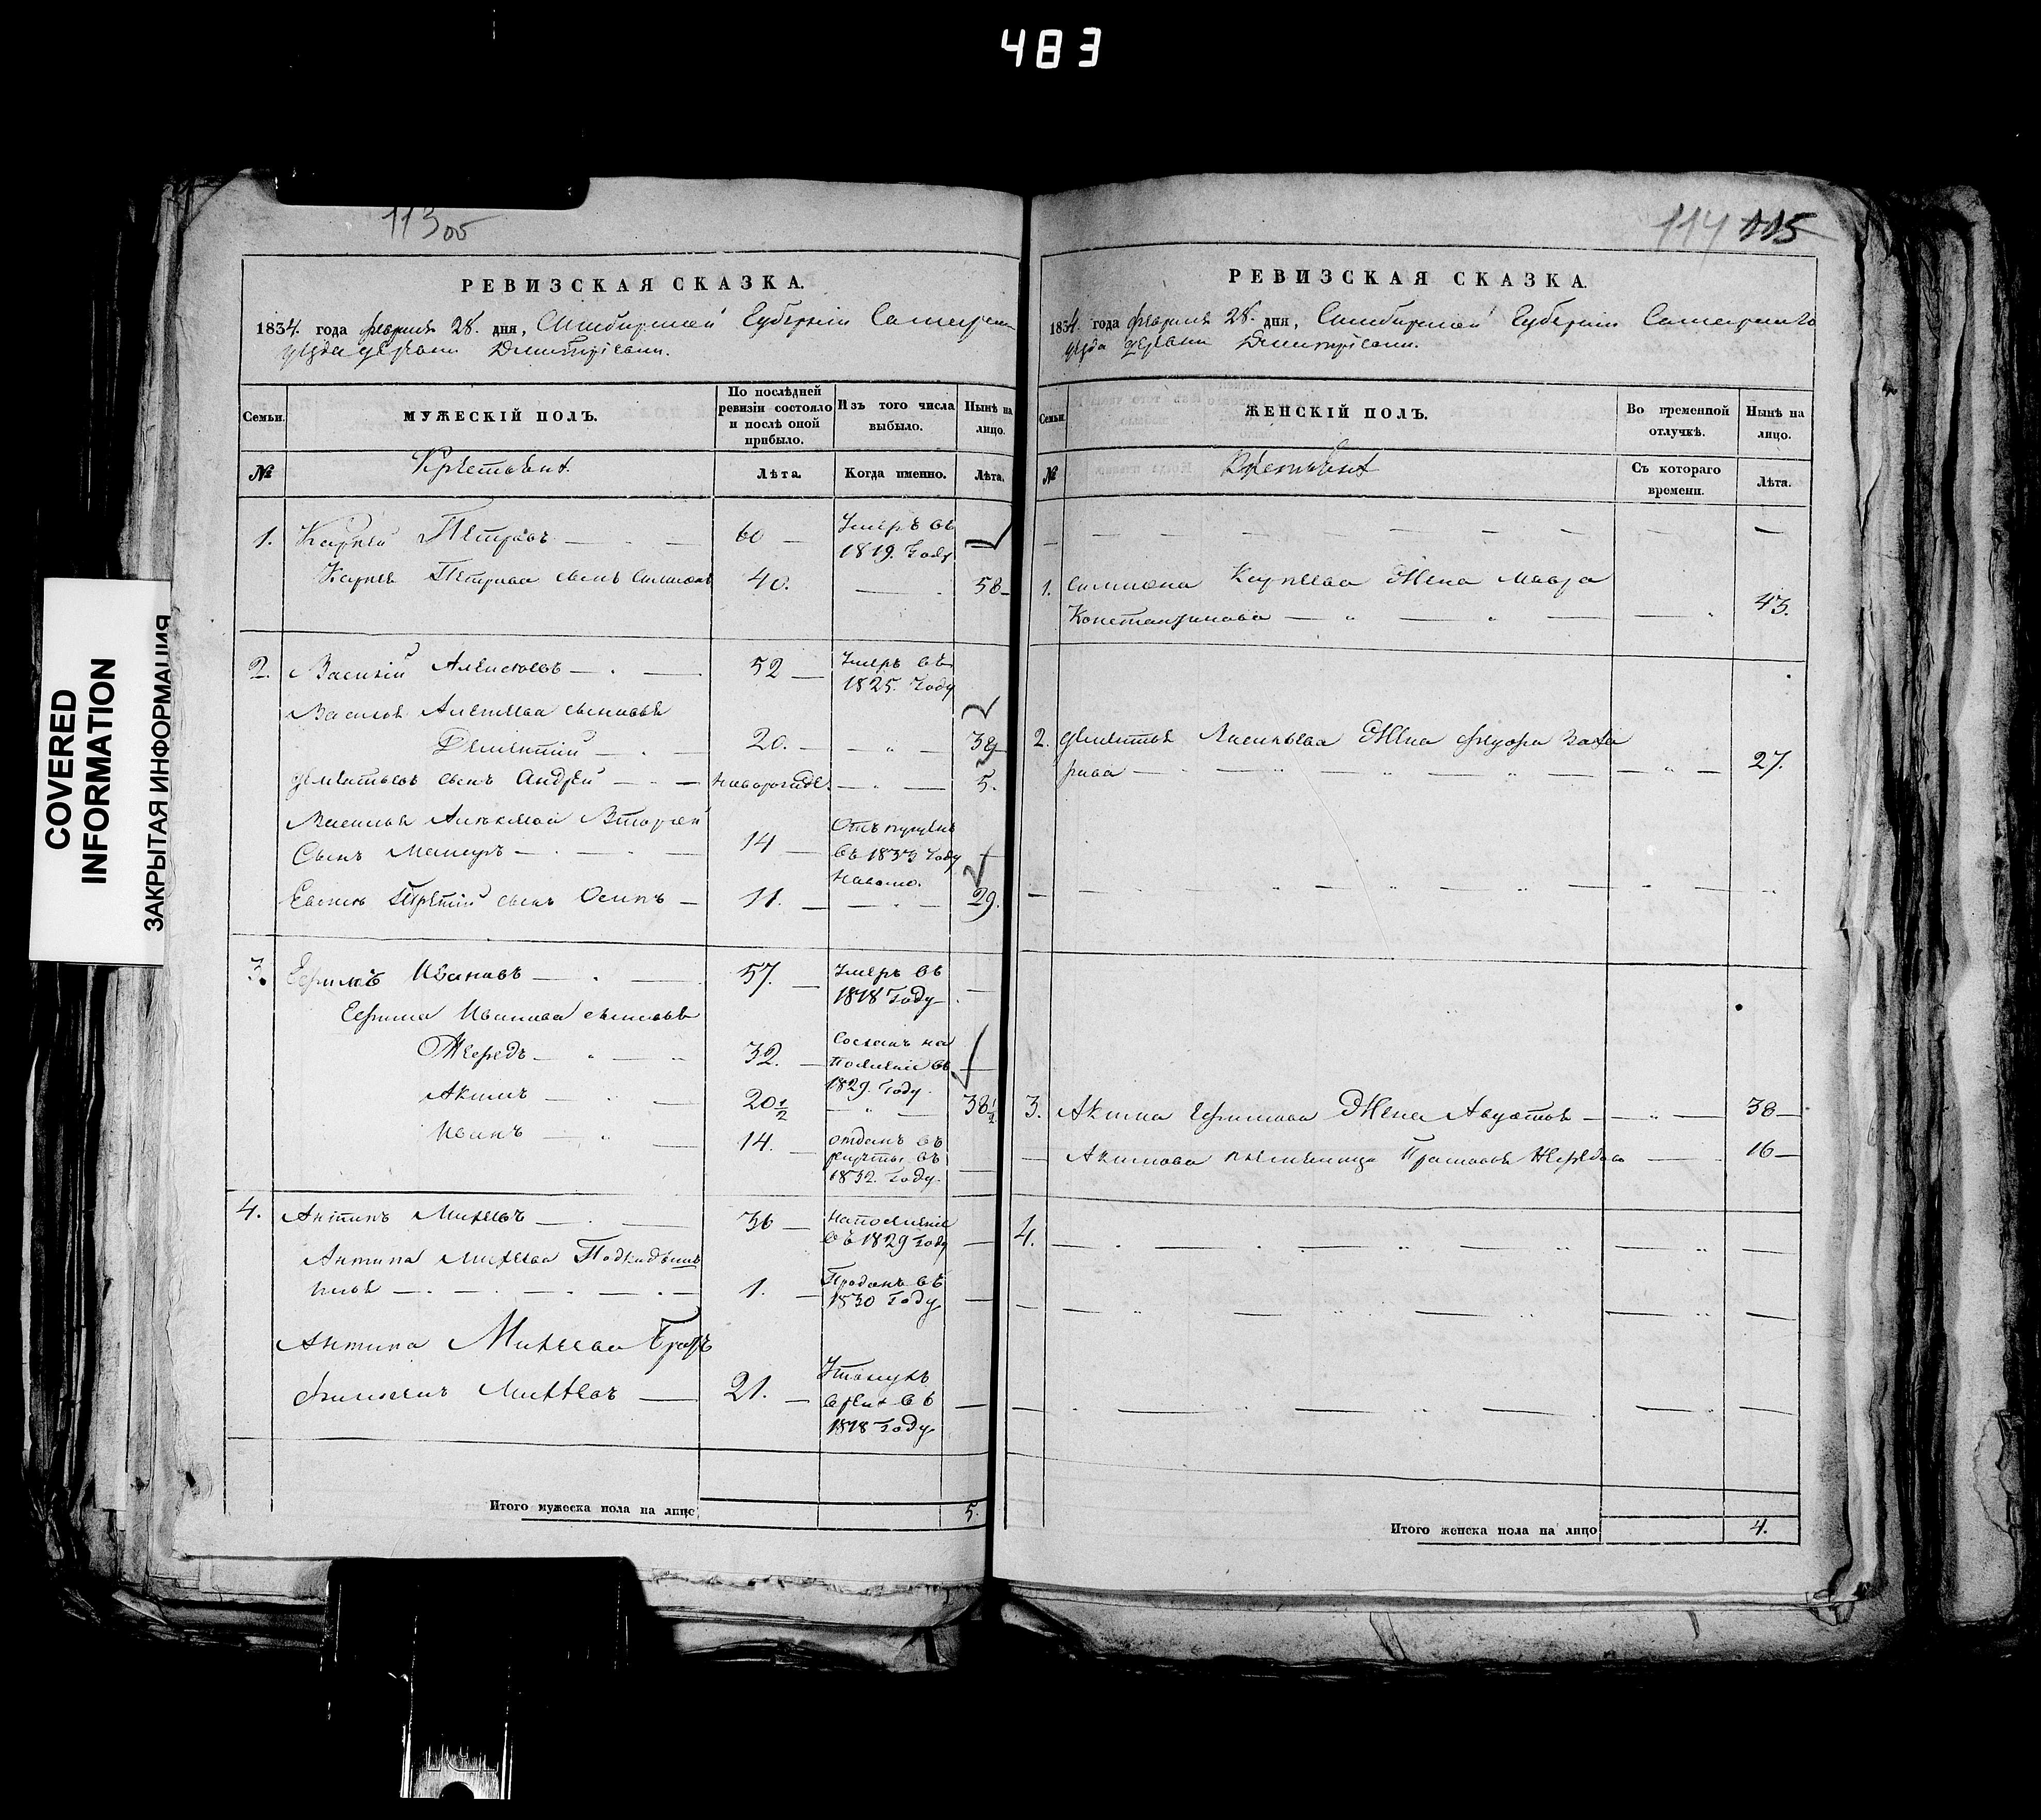 483
COVERED
INFORMATION
ЗАКРЫТАЯ ИНФОРМАЦИЯ
113 об
РЕВИЗСКАЯ СКАЗКА.
1834. года февраля 28. дня, Симбирской Губернiи Самарскаго
уезда деревни Дмитрiевки.
Семьи.
МУЖЕСКIЙ ПОЛЪ.
По послѣдней
ревизiи состояло
и послѣ оной
прибыло.
Изъ того числа
выбыло.
Нынѣ на
лицо.
№
Крестьяне
Лѣта.
Когда именно.
Лѣта.
1. Карпей Петровъ 60 Умеръ въ
1819. Году
Карпея Петрова сынъ Симионъ 40. 58
2. Василiй Алексеевъ 52 Умеръ въ
1825. Году
Василья Алексеева сыновья
Дементiй 20. 38
Дементьевъ сынъ Андрей Новорожде. 5.
Василья Алексеева Второй
Сынъ 14 Отъпущенъ
въ 1833 Году
На волю.
третiй сынъ Осипъ 11. 29.
3. Ефимъ Ивановъ 57. Умеръ въ
1818 Году
Ефима Иванова сыновья
32. Сосланъ на
Поселенiе въ
1829. Году.
Акимъ 20 1/2 38 1/2
Иванъ 14. отданъ въ
рекруты въ
1832. Году.
4. Антипъ Михеевъ 36 На поселенiе
въ 1829 Году
Антипа Михеева Подкидышъ
1. Проданъ въ
1830 Году
Антипа Михеева Братъ
Михеевъ 21. Утонулъ
в реке въ
1818 Году
Итого мужеска пола на лицо 5.
114 115
РЕВИЗСКАЯ СКАЗКА.
1834. года февраля 28. дня, Симбирской Губернiи Самарскаго
уезда деревни Дмитрiевки.
Семьи.
ЖЕНСКIЙ ПОЛЪ.
Во временной
отлучкѣ.
Нынѣ на
лицо.
№
Крестьяне
Съ котораго
времени.
Лѣта.
1. Симиона Карпеева Жена Мавра
Константинова 43.
2. Дементья Васильева Жена Федора Заха
рова 27.
3. Акима Ефимова Жена Авдотья 38
Акимова племяница Прасковья 16
4.
Итого женска пола на лицо 4.